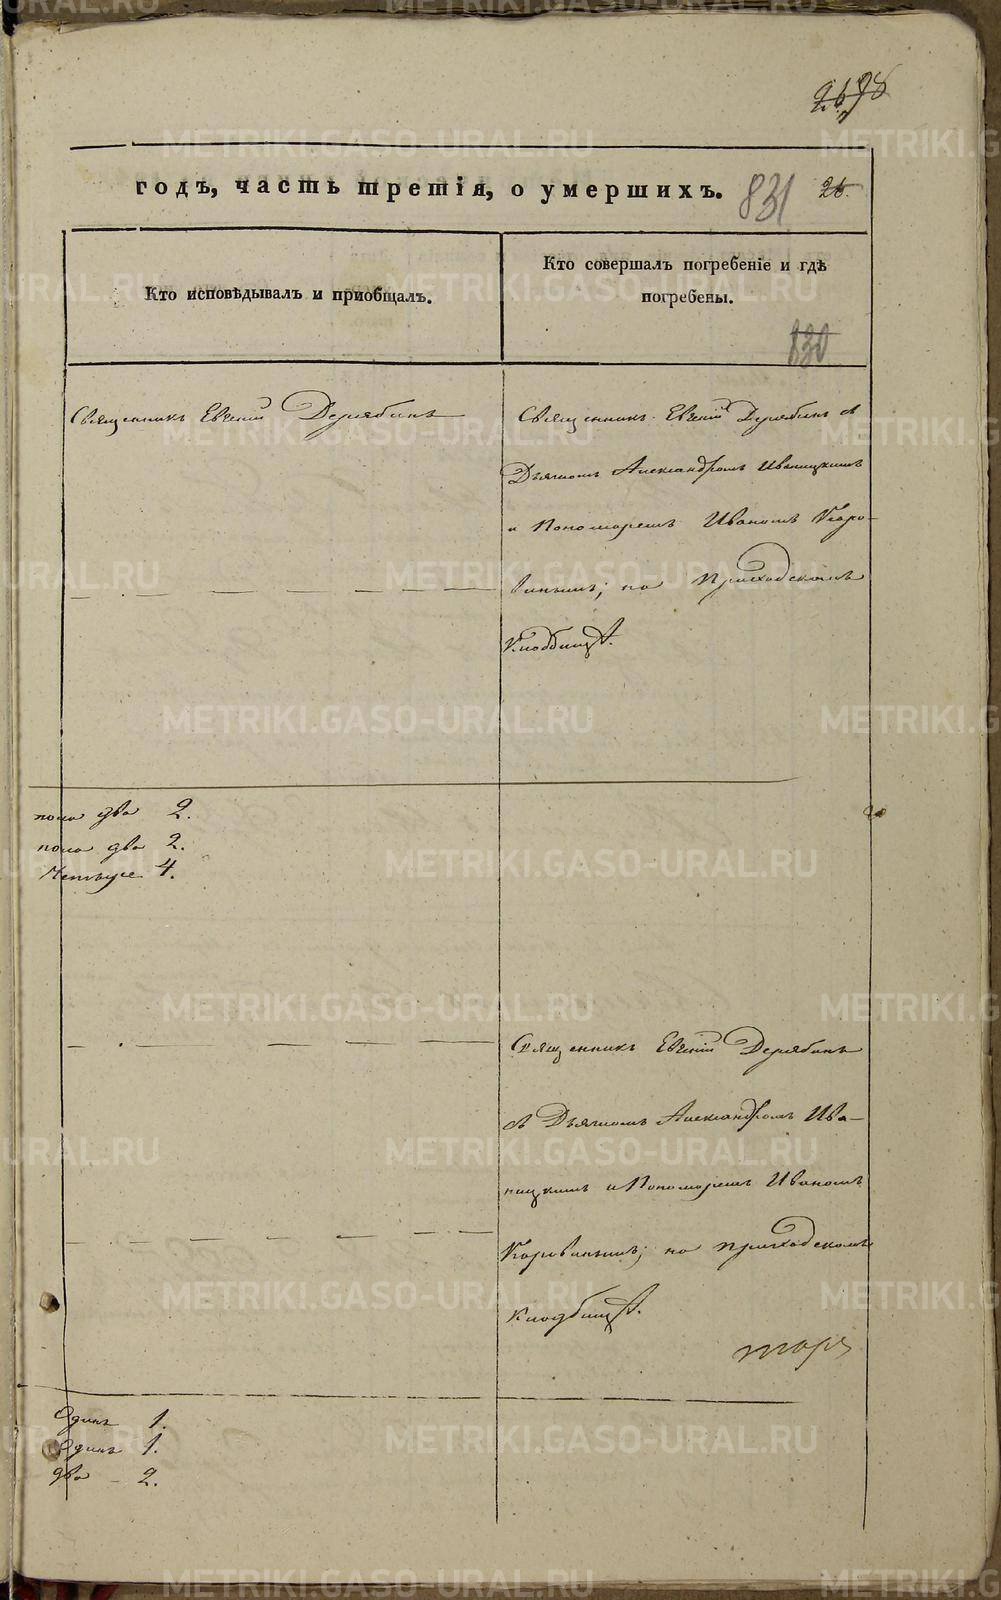 26 98
годъ, часть третія, о умершихъ.
831 26.
Кто исповѣдывалъ и приобщалъ.
Кто совершалъ погребеніе и гдѣ
погребены.
830
Священникъ Евгеній Дерябинъ
Священникъ Евгеній Дерябинъ съ
Дьячкомъ Александромъ Иваницкимъ
и Пономаремъ Иваномъ
на Приходскомъ
Кладбищѣ.
пола два 2.
пола два 2.
Четыре 4.
Священникъ Евгеній Дерябинъ
съ Дьячкомъ Александромъ Ива-
ницкимъ и Пономаремъ Иваномъ
на приходскомъ
кладбищѣ.
Одинъ 1.
Одинъ 1.
два – 2.
METRIKI.GASO-URAL.RU